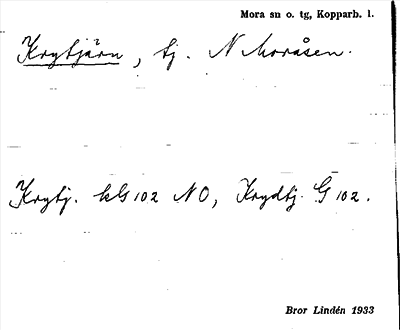 Mora sn o. tg, Kopparb. l.
Krytjärn, tj. N Moråsen.
Krytj. kG 102 NO, Krydtj. G 102.
Bror Lindén 1933